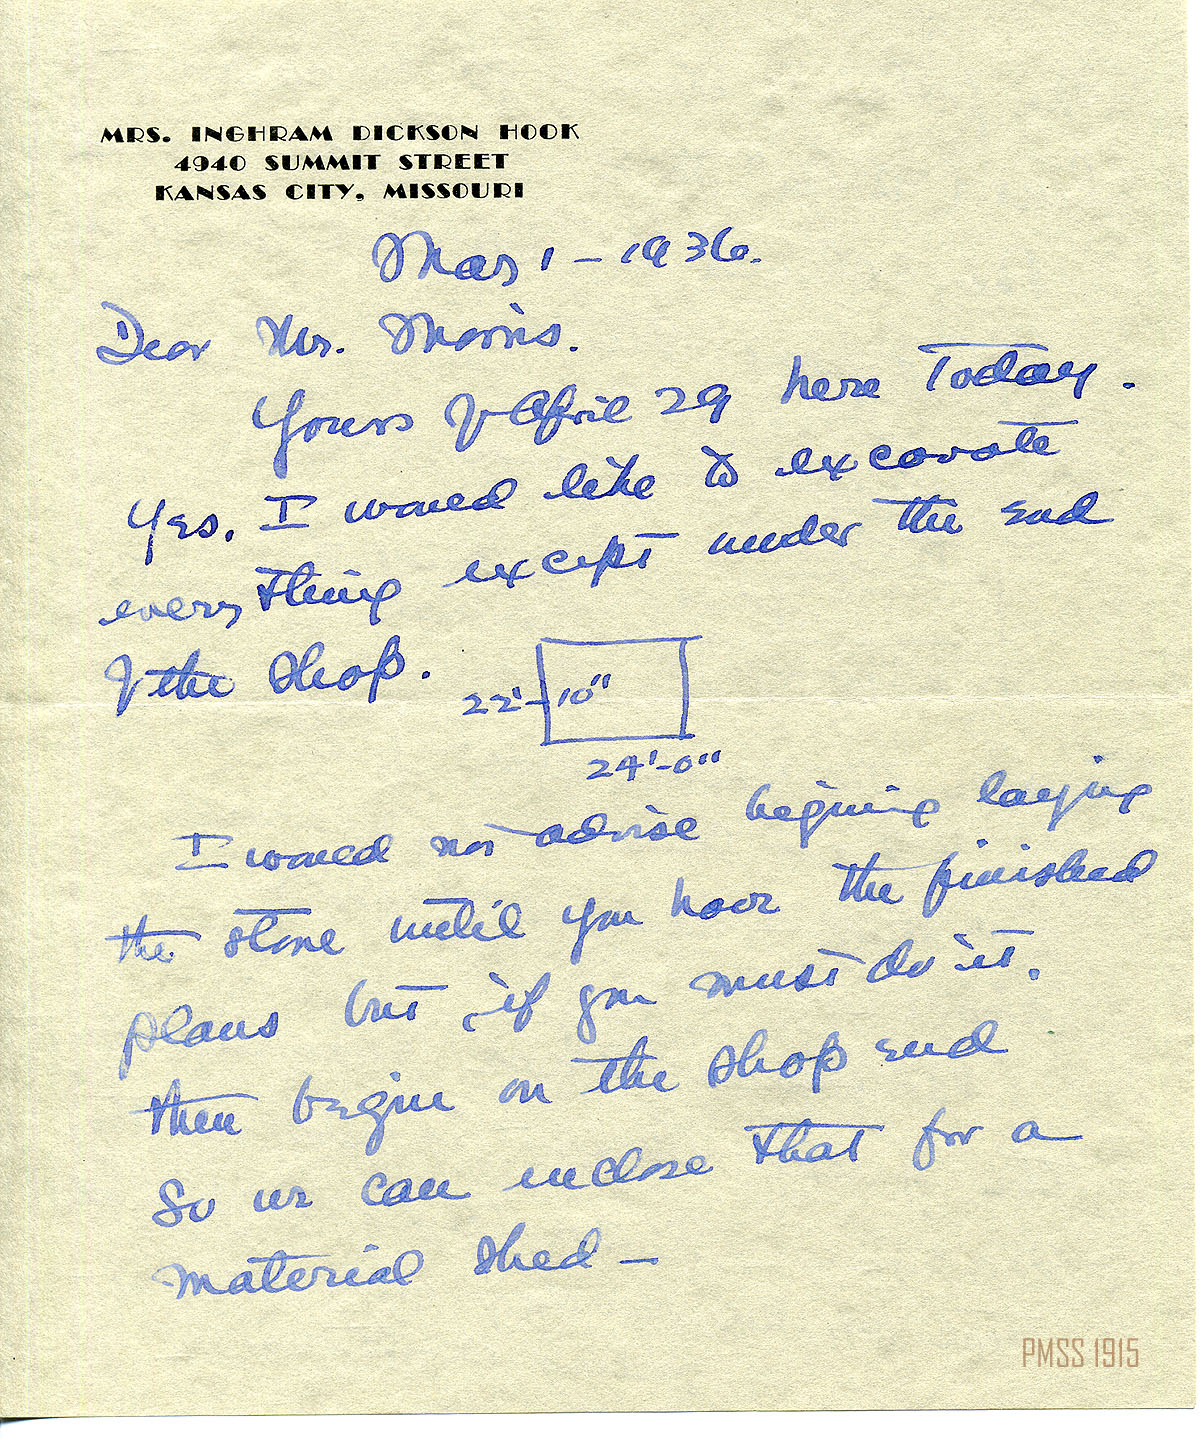 MRS. INGHRAM DICKSON HOOK
4940 SUMMIT STREET
KANSAS CITY, MISSOURI
May 1 - 1936.
Dear Mr. Morris.
Yours of April 29 here Today.
Yes. I would like to excavate
every thing except under the end
of the Shop.
22'-10"
24'-0"
I would not advise begining laying
the stone until you have the finished
plans but, if you must do it.
then begin on the shop end
So we can enclose that for a
material shed —
PMSS 1915